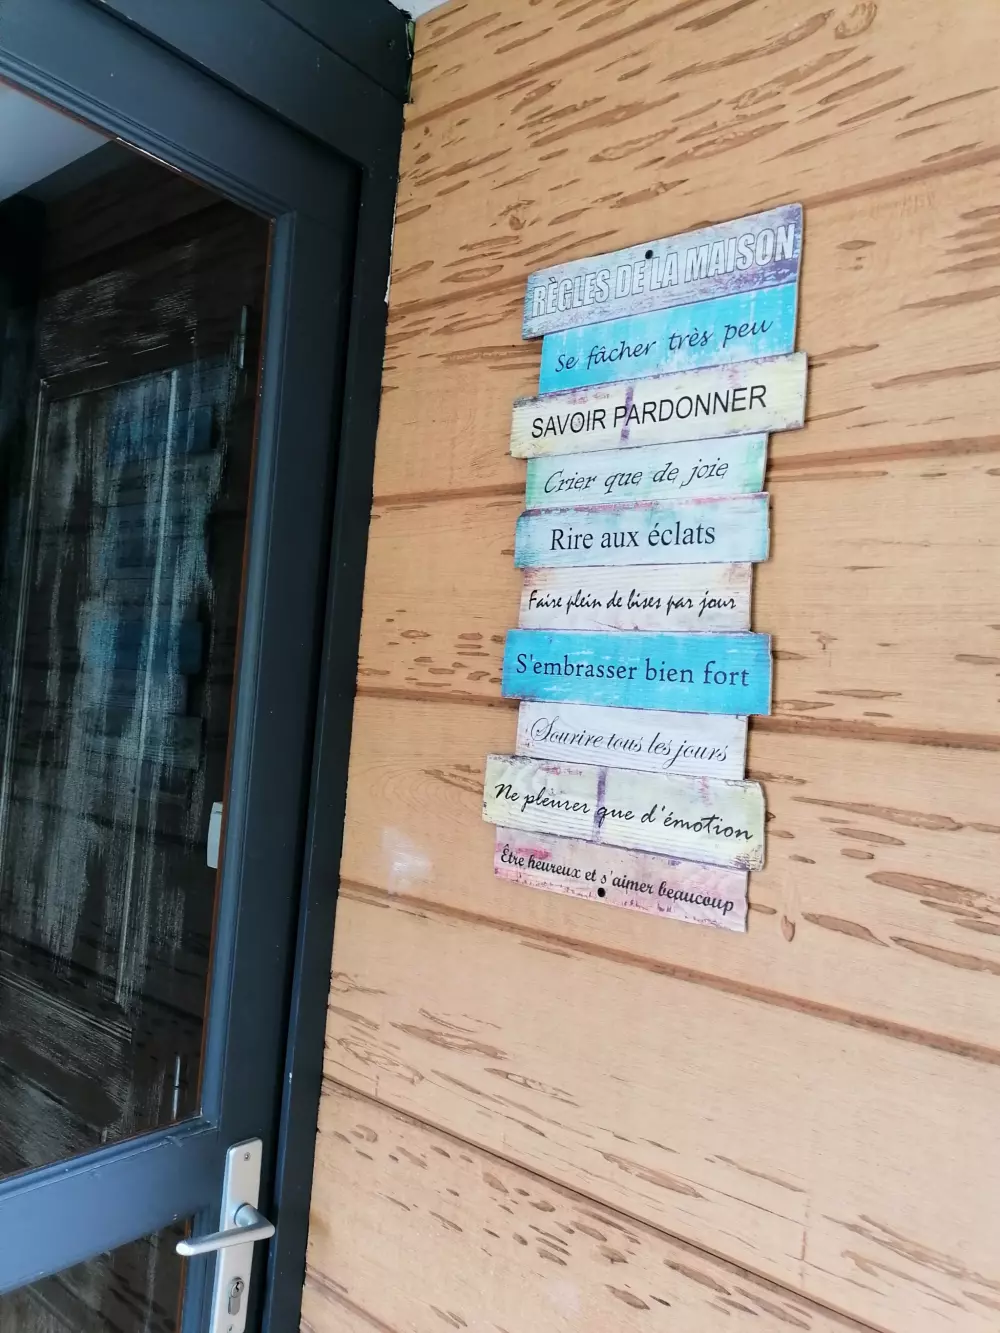 RÈGLES DE LA MAISON
Se fâcher très peu
SAVOIR PARDONNER
Crier que de joie
Rire aux éclats
Faire plein de bises par jour
S'embrasser bien fort
Sourire tous les jours
Ne pleurer que d'émotion
Être heureux et s'aimer beaucoup